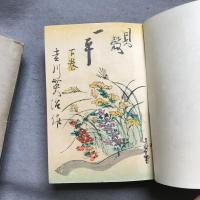 貝殻
一平
下巻
吉川英治作